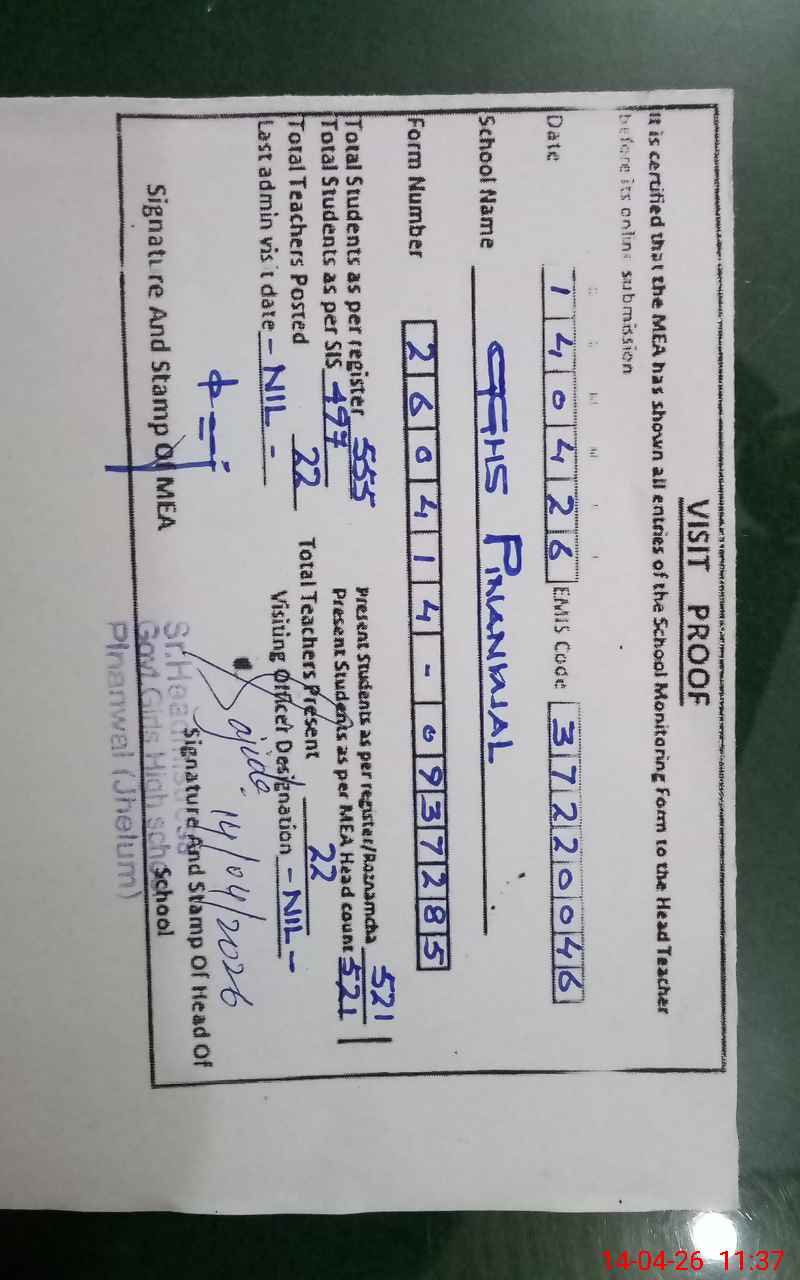 VISIT PROOF
It is certified that the MEA has shown all entries of the School Monitoring Form to the Head Teacher
before its online submission
Date 1 4 0 4 2 6 EMIS Code 3 7 2 2 0 0 4 6
School Name GGHS PINANWAL
Form Number 2 6 0 4 1 4 - 0 9 3 7 2 8 5
Total Students as per register 555 Present Students as per register/Roznamcha 521
Total Students as per SIS 497 Present Students as per MEA Head count 521
Total Teachers Posted 22 Total Teachers Present 22
Last admin visit date - NIL - Visiting Officer Designation - NIL -
Sajida 14/04/2026
Signature And Stamp Of MEA Signature And Stamp Of Head Of
School
Sr. Headmistress
Govt Girls High school
Pinanwal (Jhelum)
14-04-26 11:37